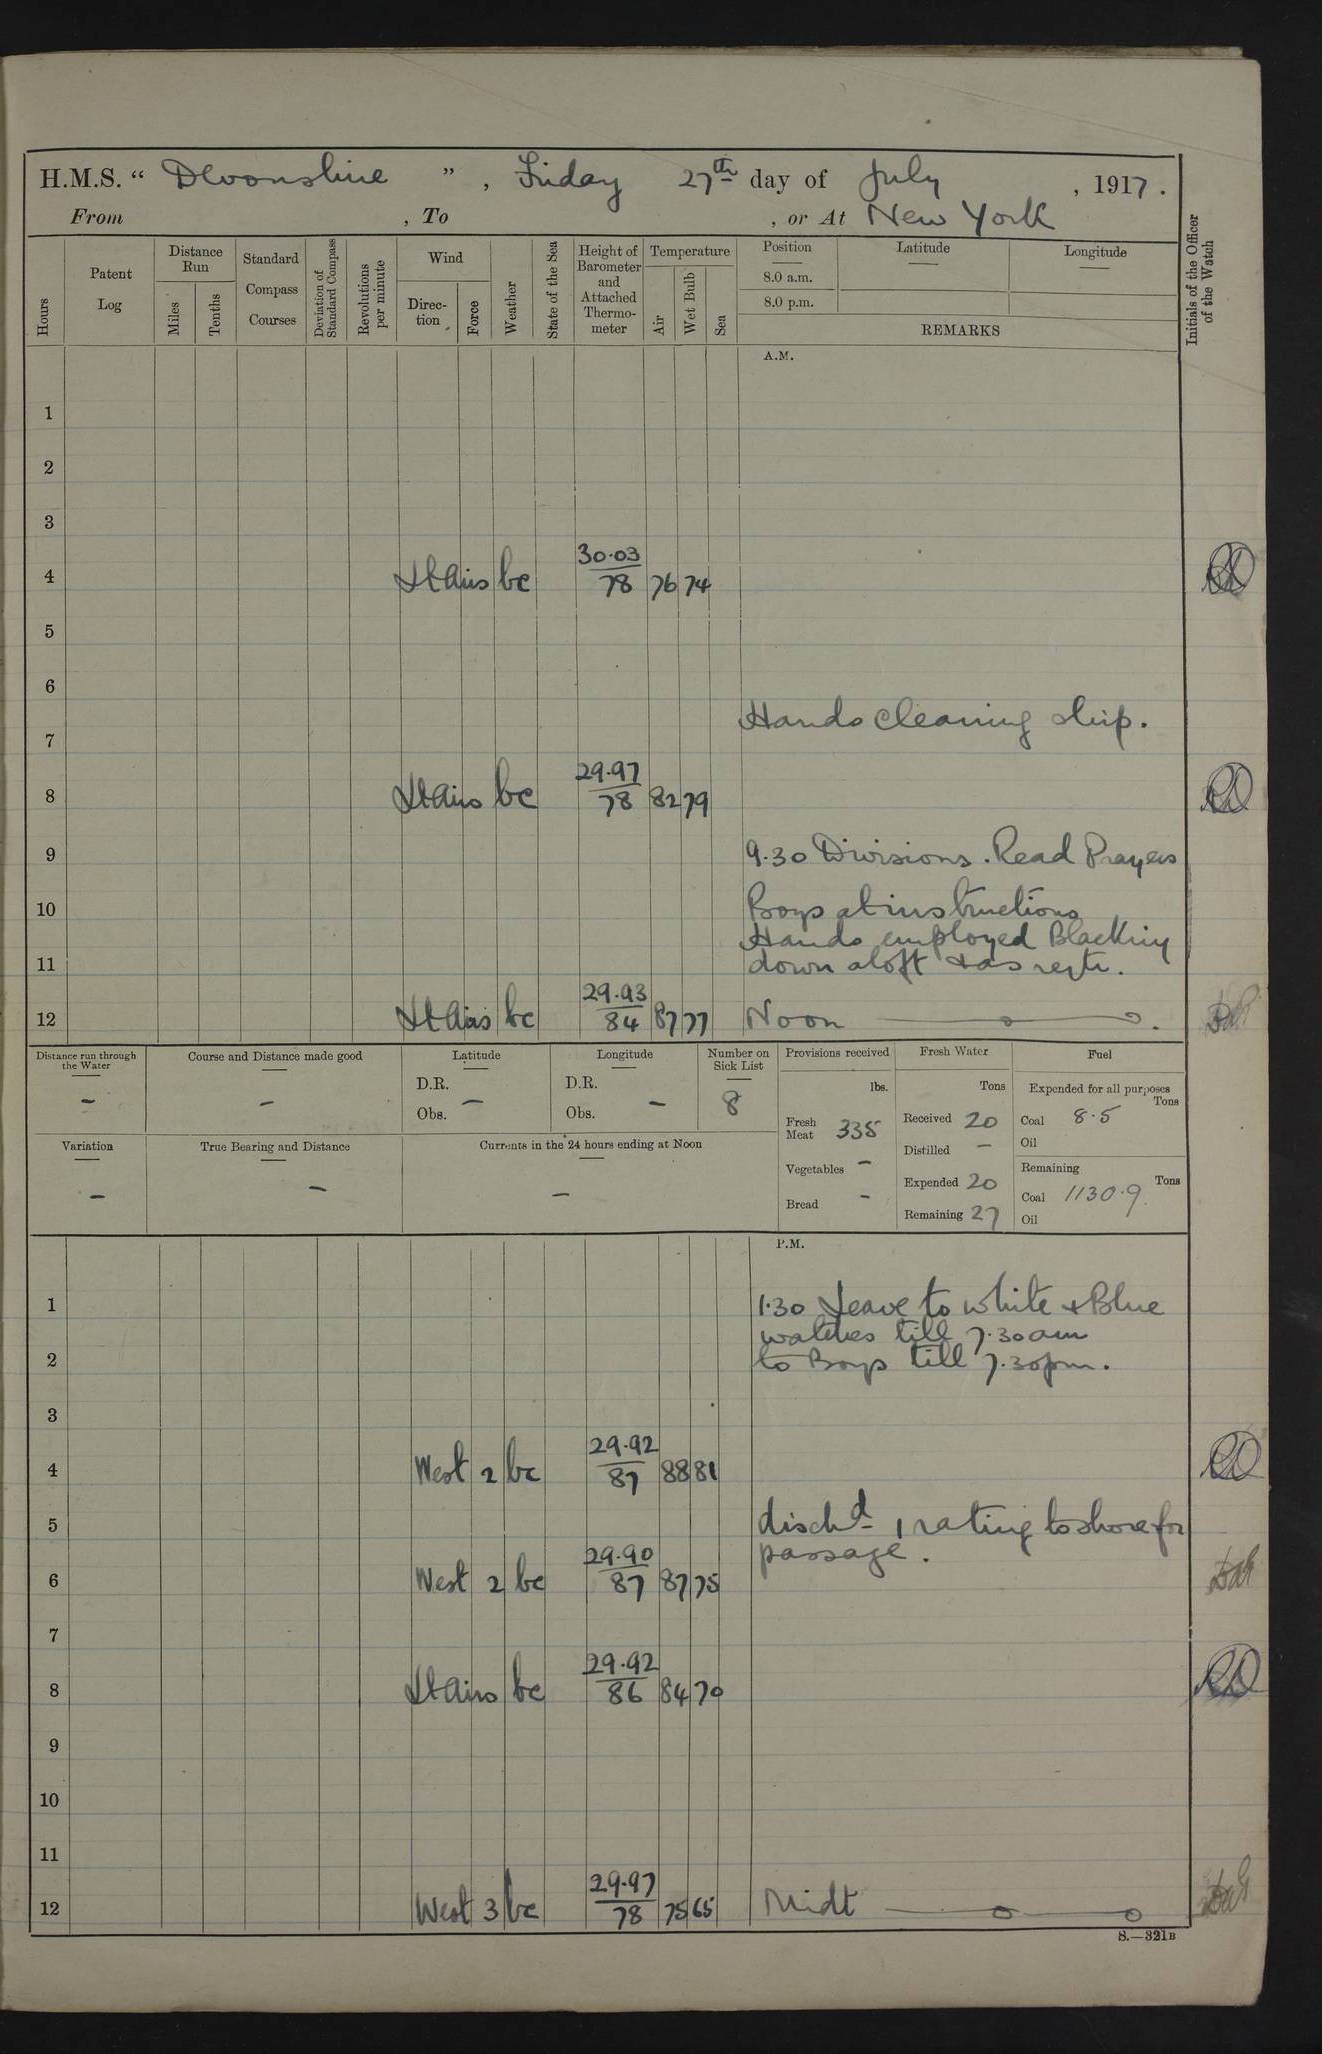 H.M.S. “ Devonshire ” , Friday 27th day of July , 1917.
From , To , or At New York
Hours
Patent Log
Distance Run
Miles
Tenths
Standard Compass Courses
Deviation of Standard Compass
Revolutions per minute
Wind
Direc-tion
Force
Weather
State of the Sea
Height of Barometer and Attached Thermo-meter
Temperature
Air
Wet Bulb
Sea
Position
Latitude
Longitude
8.0 a.m.
8.0 p.m.
REMARKS
Initials of the Officer of the Watch
A.M.
1
2
3
30.03
4 Lt Airs bc 78 76 74
5
6
Hands cleaning ship.
7
29.97
8 Lt Airs bc 78 82 79
9 9.30 Divisions. Read Prayers
10 Boys at instructions
Hands employed Blacking
11 down aloft & as reqte.
29.93
12 Lt Airs bc 84 87 77 Noon
Distance run through the Water
–
Course and Distance made good
–
Latitude
D.R.
Obs. –
Longitude
D.R.
Obs. –
Number on Sick List
8
Provisions received
lbs.
Fresh Meat 335
Vegetables –
Bread –
Fresh Water
Tons
Received 20
Distilled –
Expended 20
Remaining 27
Fuel
Expended for all purposes
Tons
Coal 8.5
Oil
Remaining
Tons
Coal 1130.9
Oil
Variation
–
True Bearing and Distance
–
Currents in the 24 hours ending at Noon
–
P.M.
1 1.30 Leave to white & Blue
watches till 7.30am
2 to Boys till 7.30pm.
3
29.92
4 West 2 bc 87 88 81
5 dischd 1 rating to shore for
passage.
29.90
6 West 2 bc 87 87 75
7
29.92
8 Lt Airs bc 86 84 70
9
10
11
29.97
12 West 3 bc 78 75 65 Midt
S.—321B